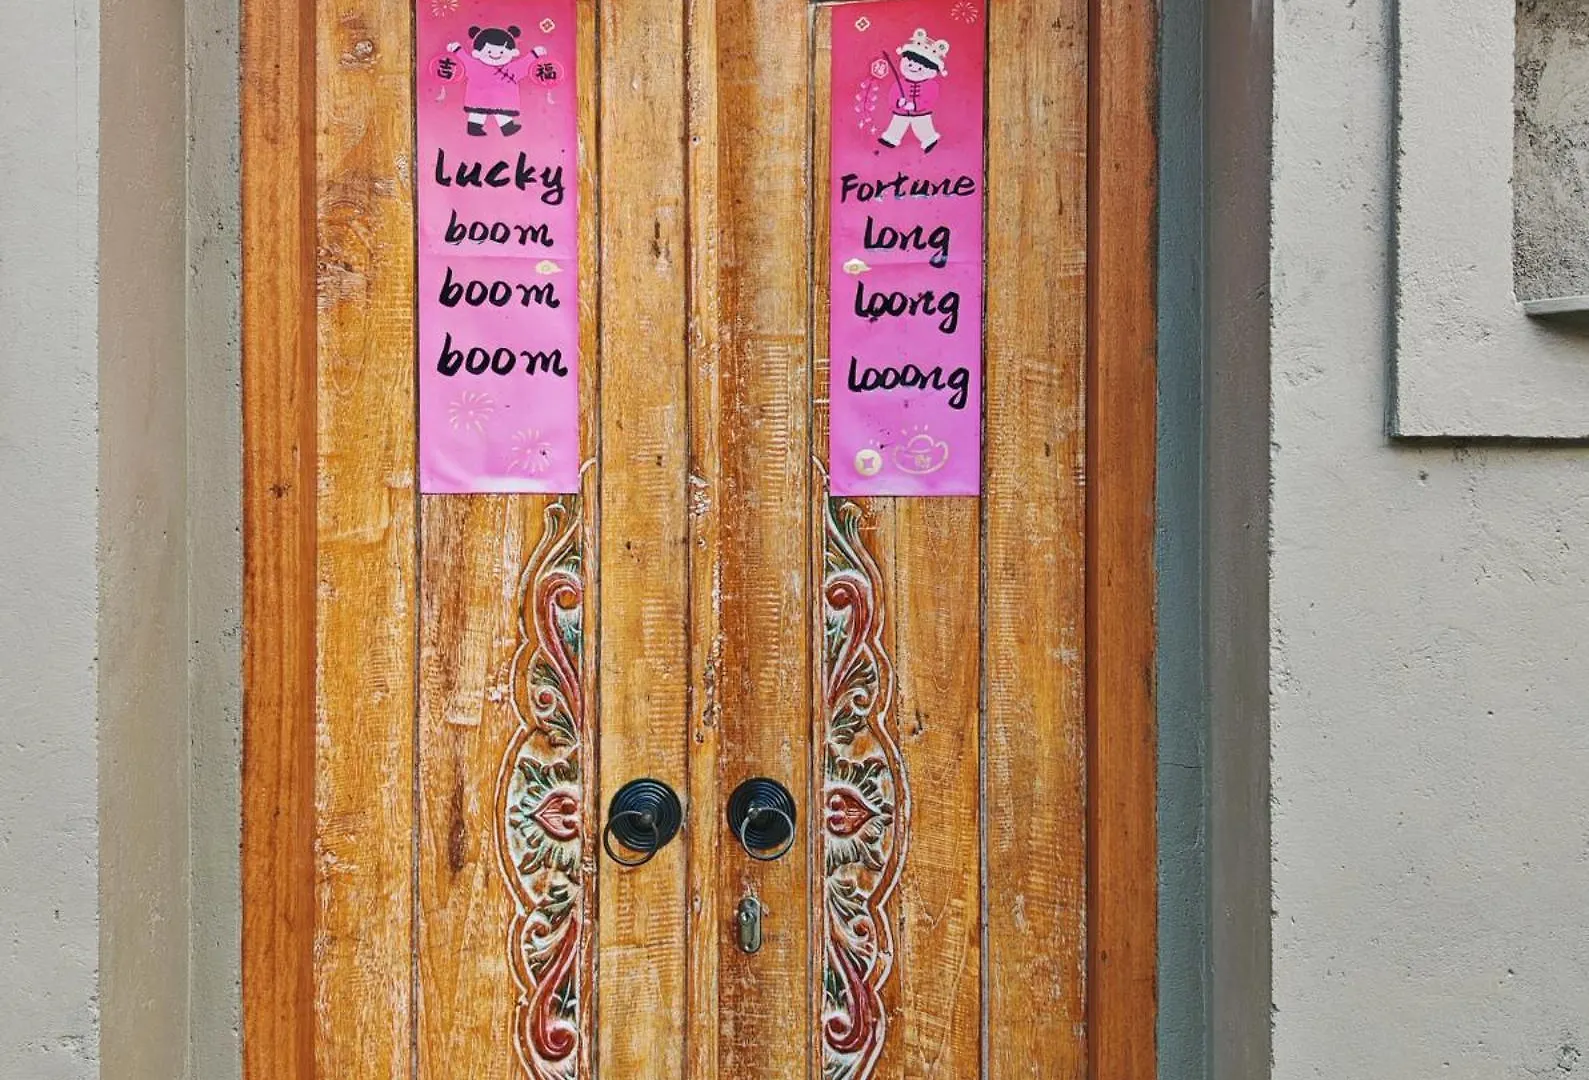 吉 福
Lucky
boom
boom
boom
福
Fortune
long
loong
looong
財